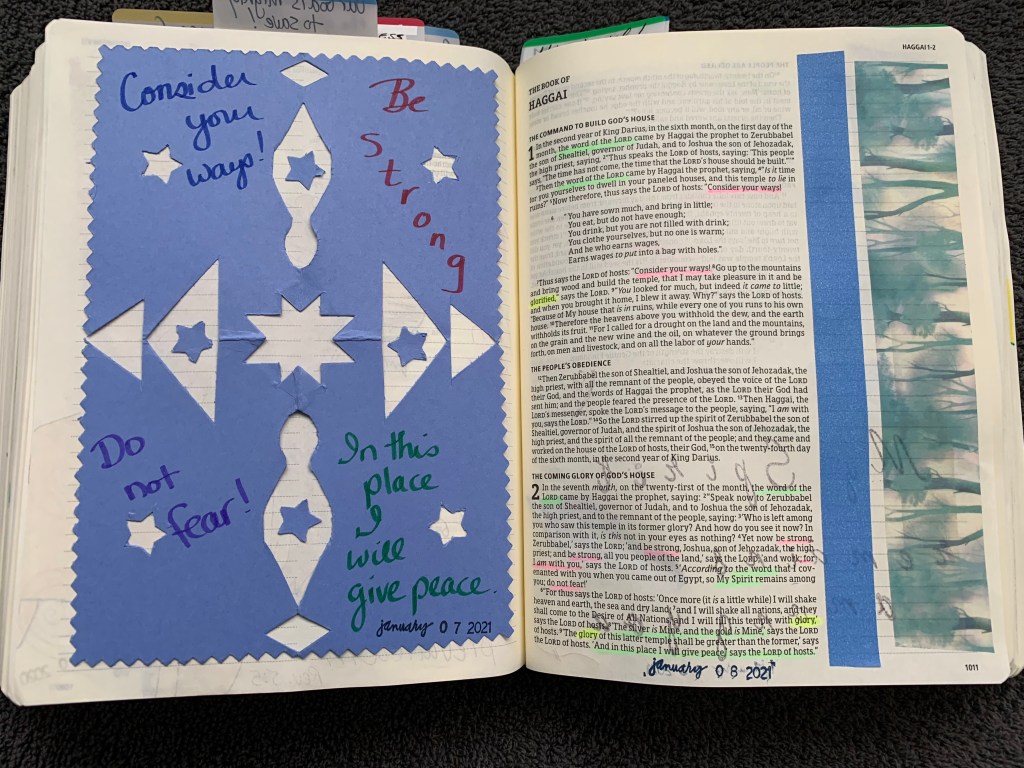 to save!
Consider
your
ways!
Be
strong
Do
not
fear!
In this
place
I
will
give peace.
january 07 2021
HAGGAI 1-2
THE BOOK OF
HAGGAI
THE COMMAND TO BUILD GOD'S HOUSE
1 In the second year of King Darius, in the sixth month, on the first day of the
month, the word of the LORD came by Haggai the prophet to Zerubbabel
the son of Shealtiel, governor of Judah, and to Joshua the son of Jehozadak,
the high priest, saying, 2"Thus speaks the LORD of hosts, saying: 'This people
says, "The time has not come, the time that the LORD's house should be built."'"
3Then the word of the LORD came by Haggai the prophet, saying, 4"Is it time
for you yourselves to dwell in your paneled houses, and this temple to lie in
ruins?" 5Now therefore, thus says the LORD of hosts: "Consider your ways!
6 "You have sown much, and bring in little;
You eat, but do not have enough;
You drink, but you are not filled with drink;
You clothe yourselves, but no one is warm;
And he who earns wages,
Earns wages to put into a bag with holes."
7Thus says the LORD of hosts: "Consider your ways! 8Go up to the mountains
and bring wood and build the temple, that I may take pleasure in it and be
glorified," says the LORD. 9"You looked for much, but indeed it came to little;
and when you brought it home, I blew it away. Why?" says the LORD of hosts.
"Because of My house that is in ruins, while every one of you runs to his own
house. 10Therefore the heavens above you withhold the dew, and the earth
withholds its fruit. 11For I called for a drought on the land and the mountains,
on the grain and the new wine and the oil, on whatever the ground brings
forth, on men and livestock, and on all the labor of your hands."
THE PEOPLE'S OBEDIENCE
12Then Zerubbabel the son of Shealtiel, and Joshua the son of Jehozadak, the
high priest, with all the remnant of the people, obeyed the voice of the LORD
their God, and the words of Haggai the prophet, as the LORD their God had
sent him; and the people feared the presence of the LORD. 13Then Haggai, the
LORD's messenger, spoke the LORD's message to the people, saying, "I am with
you, says the LORD." 14So the LORD stirred up the spirit of Zerubbabel the son of
Shealtiel, governor of Judah, and the spirit of Joshua the son of Jehozadak, the
high priest, and the spirit of all the remnant of the people; and they came and
worked on the house of the LORD of hosts, their God, 15on the twenty-fourth day
of the sixth month, in the second year of King Darius.
THE COMING GLORY OF GOD'S HOUSE
2 In the seventh month, on the twenty-first of the month, the word of the
LORD came by Haggai the prophet, saying: 2"Speak now to Zerubbabel
the son of Shealtiel, governor of Judah, and to Joshua the son of Jehozadak, the
high priest, and to the remnant of the people, saying: 3'Who is left among
you who saw this temple in its former glory? And how do you see it now? In
comparison with it, is this not in your eyes as nothing? 4Yet now be strong,
Zerubbabel,' says the LORD; 'and be strong, Joshua, son of Jehozadak, the high
priest; and be strong, all you people of the land,' says the LORD, 'and work; for
I am with you,' says the LORD of hosts. 5'According to the word that I cov-
enanted with you when you came out of Egypt, so My Spirit remains among
you; do not fear!'
6"For thus says the LORD of hosts: 'Once more (it is a little while) I will shake
heaven and earth, the sea and dry land; 7and I will shake all nations, and they
shall come to the Desire of All Nations, and I will fill this temple with glory,'
says the LORD of hosts. 8'The silver is Mine, and the gold is Mine,' says the LORD
of hosts. 9'The glory of this latter temple shall be greater than the former,' says
the LORD of hosts. 'And in this place I will give peace,' says the LORD of hosts."
january 08 2021
1011